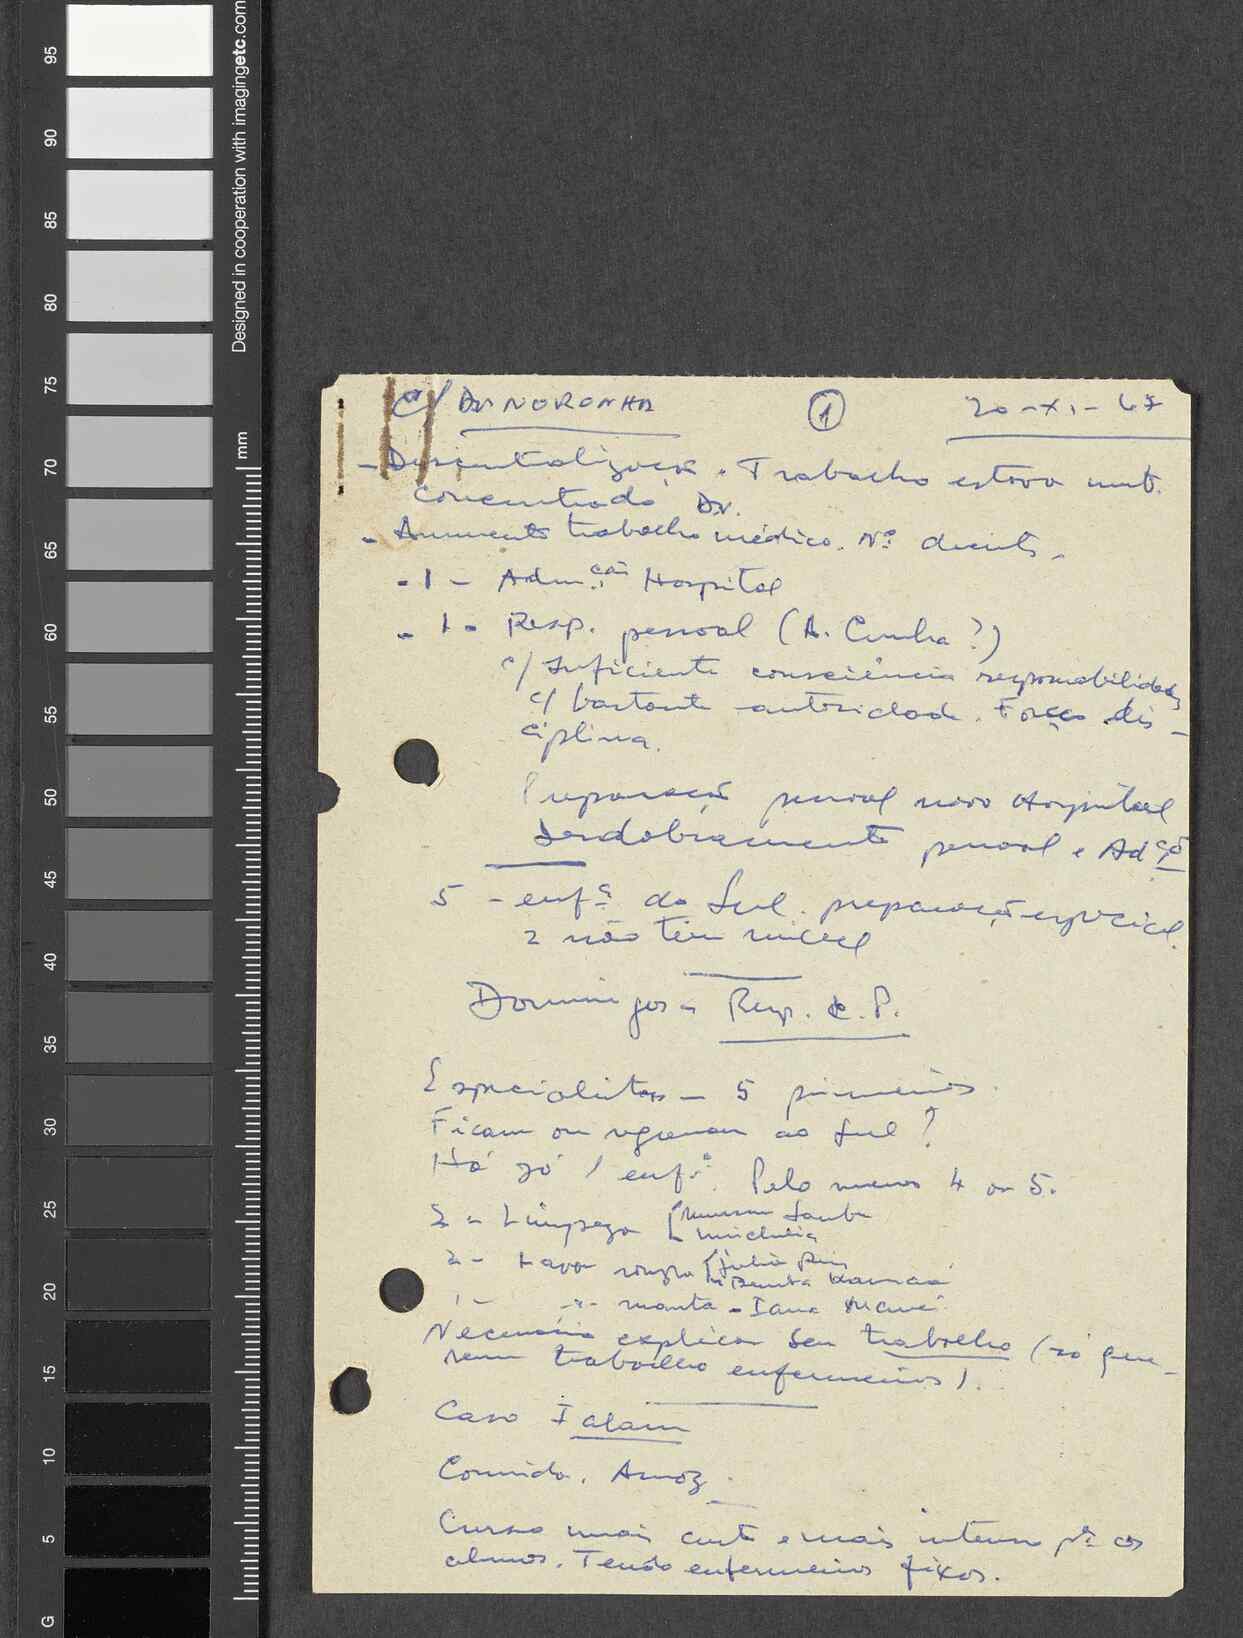 Designed in cooperation with imagingetc.com
mm
95
90
85
80
75
70
65
60
55
50
45
40
35
30
25
20
15
10
5
G
c/ Dr NORONHA 1 20-XI-67
- Descentralização. Trabalho estava mt.
concentrado Dr.
- Aumento trabalho médico. Nº doents.
- 1 - Adm.ção Hospital
- 1 - Resp. pessoal (A. Cunha?)
c/ suficiente consciência responsabilidades
c/ bastante autoridade. Força dis-
ciplina.
Preparação pessoal novo Hospital
desdobramento pessoal e Adção
5 - enfª do Sul. preparação especial.
2 não têm nível
Domingos - Resp. de P.
Especialistas - 5 primeiros.
Ficam ou regressam ao Sul?
Há só 1 enfº. Pelo menos 4 ou 5.
2 - Limpeza
2 - Lavar roupa
1 - -"- manta -
Necessário explicar seu trabalho (só que-
rem trabalho enfermeiros).
Caso Ialain
Comida. Arroz.
Curso mais curto e mais intenso pª os
alunos. Tendo enfermeiros fixos.